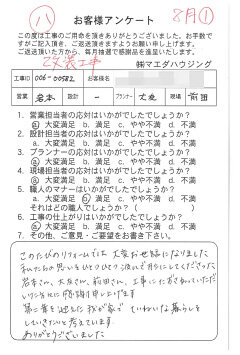 (八)
8月①
お客様アンケート
この度は工事のご用命を頂きありがとうございました。お手数ですがご記入頂き、ご返送頂きますようお願い申し上げます。
ご返送いただいた方に、毎月抽選で感謝品を進呈いたします。
改装工事
㈱マエダハウジング
工事ID 006-00582 お客様名
営業 岩本 設計 - プランナー 大庭 現場 前田
1. 営業担当者の応対はいかがでしたでしょうか?
a 大変満足 b 満足 c やや不満 d 不満
2. 設計担当者の応対はいかがでしたでしょうか?
a 大変満足 b 満足 c やや不満 d 不満
3. プランナーの応対はいかがでしたでしょうか?
a 大変満足 b 満足 c やや不満 d 不満
4. 現場担当者の応対はいかがでしたでしょうか?
a 大変満足 b 満足 c やや不満 d 不満
5. 職人のマナーはいかがでしたでしょうか?
a 大変満足 b 満足 c やや不満 d 不満
それはどの職人でしょうか? ( )
6. 工事の仕上がりはいかがでしたでしょうか?
a 大変満足 b 満足 c やや不満 d 不満
7. その他、ご意見・ご要望をお書き下さい。
このたびのリフォームでは 大変お世話になりました
私たちの思いをひとつひとつ 形にしてくださった
岩本さん、大庭さん、前田さん、工事に
いただいた方々に感謝申し上げます
第二章を迎えた我が家で ていねいな暮らしを
していきたいと考えています
ありがとうございました